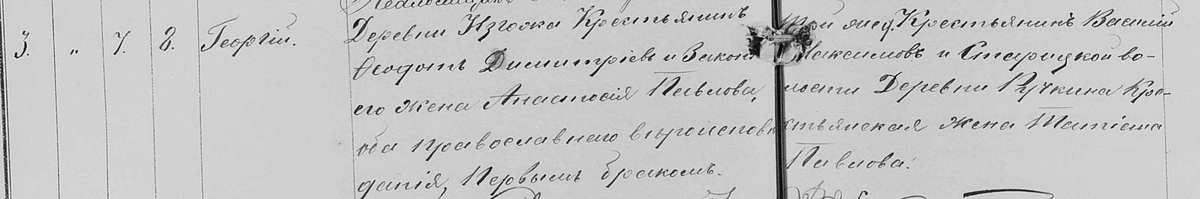 3. " 7. 8. Георгій.
Деревни Изгожа Крестьянинъ
Ѳеодотъ Димитріевъ и Законн
его жена Анастасія Павлова,
оба православнаго вѣроиспов
данія, Первымъ бракомъ.
Крестьянинъ Василій
Максимовъ и Старицкой во-
лости Деревни Ручкина Кре-
стьянская жена Татіана
Павлова.